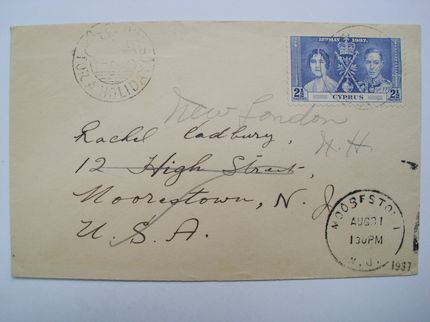 12TH MAY 1937.
2½ CYPRUS 2½
FOR A HOLIDAY
New London
N.H.
Rachel Cadbury,
12 High Street,
Moorestown, N. J.
U. S. A.
MOORESTOWN
AUG 31
130PM
N.J.
1937